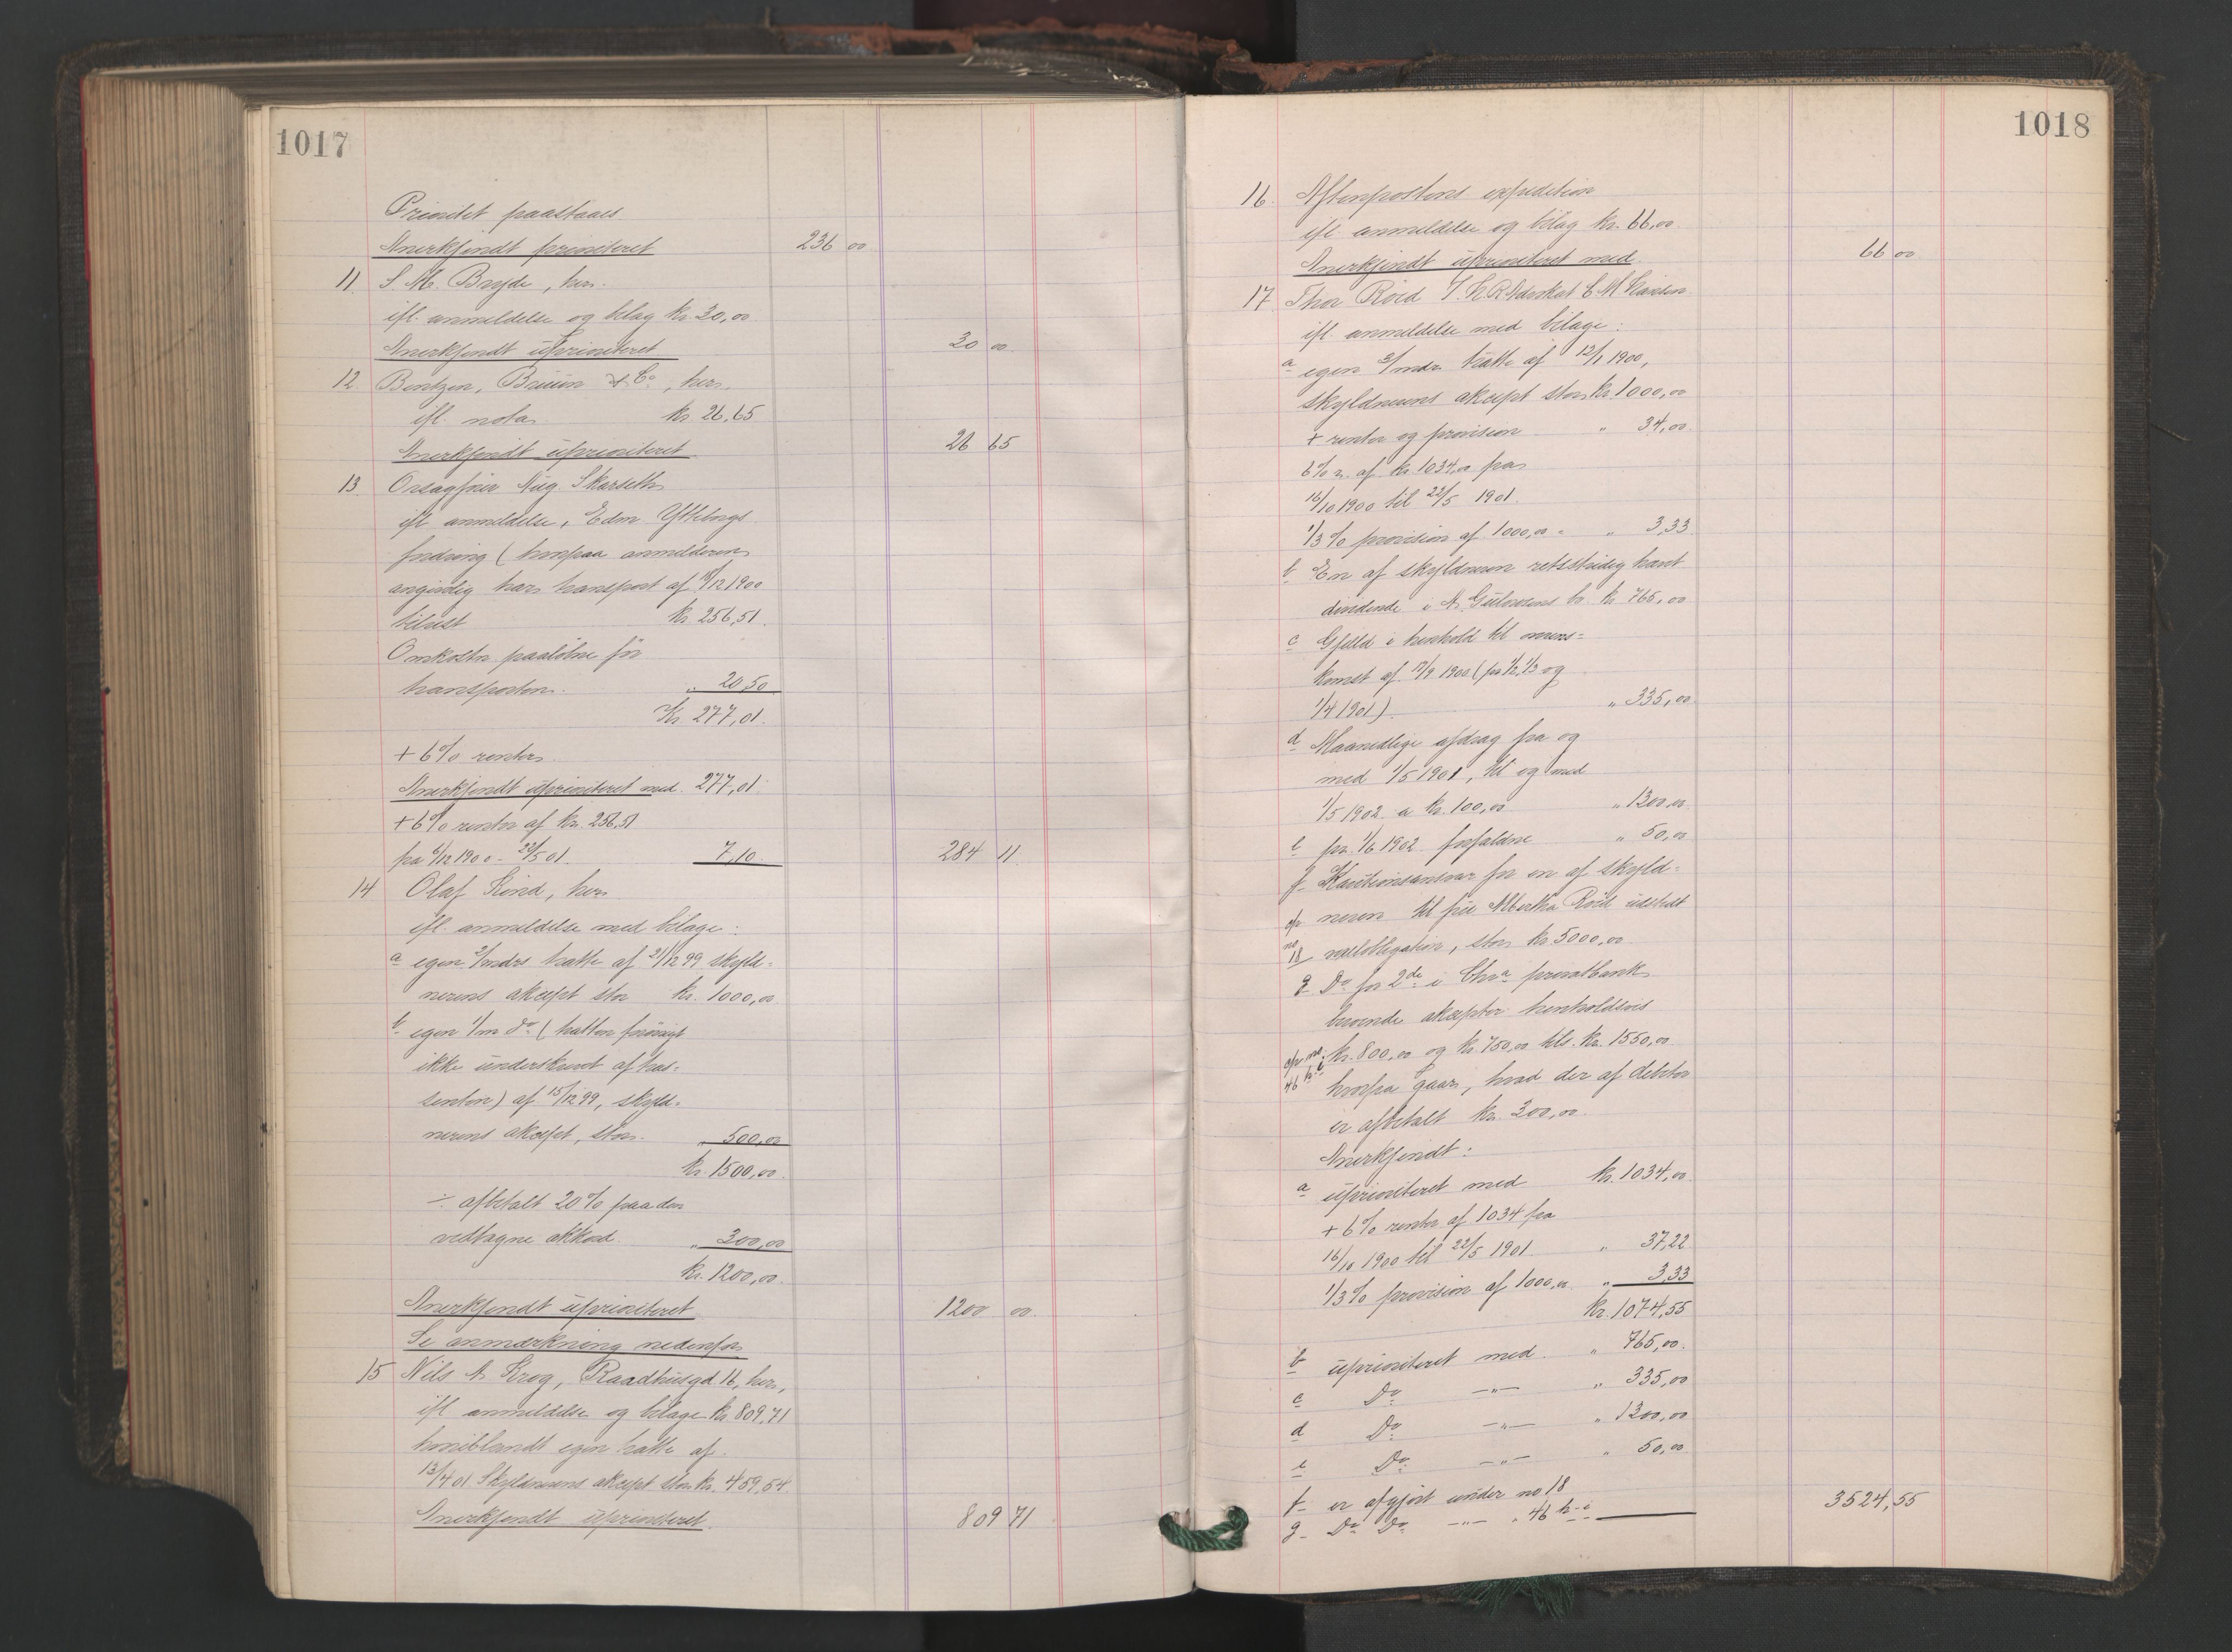 1017
Prioritet paastaaes
Anerkjendt prioriteret 236 00
11 S. M. Bryde, her.
ifl. anmeldelse og bilag kr. 30,00
Anerkjendt uprioriteret 30 00
12 Bentzen, Bruun & Co, her.
ifl. nota kr 26,65
Anerkjendt uprioriteret 26 65
13 Orsagfører Aug. Skarseth
ifl anmeldelse, Edm. Yttebergs
fordring (hvorpaa anmelderen
angivelig har transport af /12 1900
bilæst kr. 256,51
Omkostn. paaløbne før
transporten " 20,50
Kr 277,01
+ 6% renter
Anerkjendt uprioriteret med 277,01
+ 6% renter af kr. 256,51
fra 6/12 1900 - 22/5 01. 7,10 284 11
14 Olaf Rind, her
ifl. anmeldelse med bilage:
a egen 3/mdrs tratte af 21/12 99 skyld=
nerens aksept stor kr. 1000,00
b egen 1/m do (tratten forøvrigt
ikke underskrevet af tras=
senten) af 15/12 99, skyld=
nerens aksept, stor " 500,00
kr. 1500,00
÷ afbetalt 20% paa den
vedtagne akkord " 300,00
kr. 1200,00
Anerkjendt uprioriteret 1200 00
Se anmærkning nedenfor
15 Nils A. Krog, Raadhusgd 16, her,
ifl anmeldelse og bilage kr. 809,71
hvoriblandt egen tratte af
13/4 01 Skyldnerens aksept stor kr. 459,54
Anerkjendt uprioriteret 809 71
1018
16. Aftenpostens expedition
ifl. anmeldelse og bilag kr. 66,00
Anerkjendt uprioriteret med. 66 00
17 Thor Röed v. H.R. Advokat C M Hansen
ifl. anmeldelse med bilage:
a egen 3/mdr tratte af 12/1 1900,
skyldnerens aksept stor kr. 1000,00
+ renter og provision " 34,00
6% r. af kr. 1034,00 fra
16/10 1900 til 22/5 1901.
1/3% provision af 1000,00 = " 3,33
b En af skyldneren retsstridig hævt
dividende i A. Gulovsens bo kr 765,00
c Gjæld i henhold til overens=
komst af 17/9 1900 (fra 1/2, 1/3 og
1/4 1901) " 335,00
d Maanedlige afdrag fra og
med 1/5 1901, til og med
1/5 1902 a kr. 100,00 " 1300,00
e pr. 1/6 1902 forfaldne " 50,00
f Kautionsansvar for en af skyld=
cfr neren til frue Albertha Röed udstedt
no 18 vexelobligation, stor kr 5000,00
g Do for 2de i Chra privatbank
beroende aksepter henholdsvis
cfr no. 46 kr. 800,00 og kr. 750,00 tils. kr. 1550,00
hvorfra gaar, hvad der af debitor
er afbetalt kr. 300,00.
Anerkjendt:
a uprioriteret med kr. 1034,00
+ 6% renter af 1034 fra
16/10 1900 til 22/5 1901 " 37,22
1/3% provision af 1000,00 " 3,33
kr. 1074,55
b uprioriteret med " 765,00
c Do —"— " 335,00
d Do —"— " 1300,00
e Do —"— " 50,00
f er afgjort under no 18
g Do Do —"— " 46 3524,55